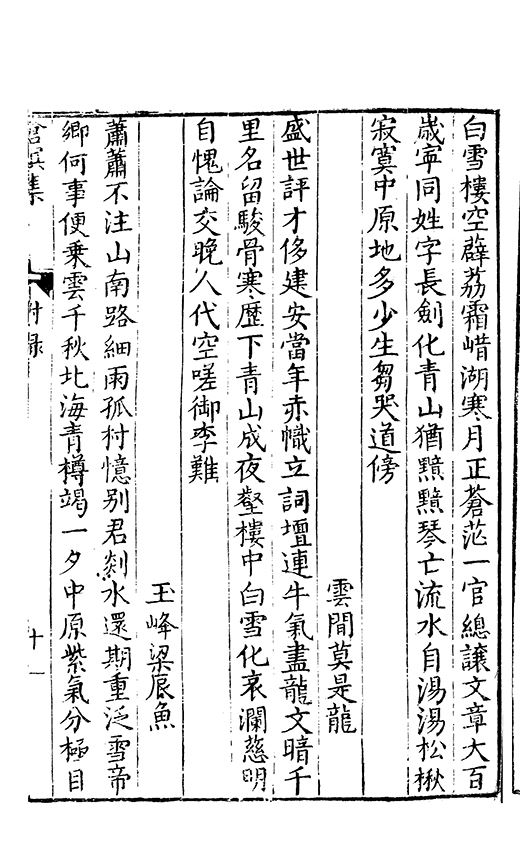 白雪樓空薜荔霜㟙湖寒月正蒼茫一官總讓文章大百
歲寧同姓字長劍化青山猶黯黯琴亡流水自湯湯松楸
寂寞中原地多少生芻哭道傍
雲間莫是龍
盛世評才侈建安當年赤幟立詞壇連牛氣盡龍文暗千
里名留駿骨寒歷下青山成夜壑樓中白雪化哀瀾慈明
自愧論交晚人代空嗟御李難
玉峰梁辰魚
蕭蕭不注山南路細雨孤村憶别君剡水還期重泛雪帝
鄉何事便乗雲千秋北海青樽竭一夕中原紫氣分極目
滄溟集
附録
十一